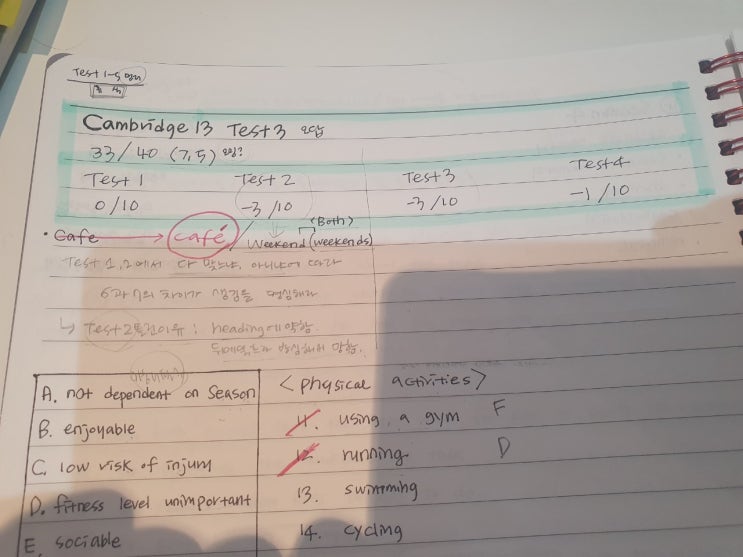 Test 1~5
Cambridge 13 Test3 오답
33/40 (7.5)
Test 1 Test 2 Test3 Test4
0/10 -3/10 -3/10 -1/10
(Both)
• Cafe → Café / Weekend (weekends)
Test 1, 2에서 다 맞느냐, 아니냐에 따라
6과 7의 차이가 생김을 명심해라
↳ Test 2 틀린이유 : heading에 약함.
방심해서 망함.
A. not dependent on season
B. enjoyable
C. low risk of injury
D. fitness level unimportant
E. sociable
<physical activities>
11. using a gym F
12. running D
13. swimming
14. cycling